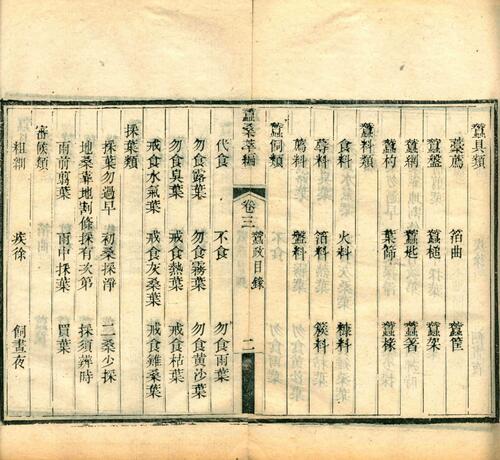 蠶具類
藁薦 箔曲 蠶筐
蠶盤 蠶槌 蠶架
蠶網 蠶匙 蠶箸
蠶杓 葉篩 蠶椽
蠶料類
食料 火料 糠料
蓐料 箔料 簇料
薦料 盤料
蠶飼類
代食 不食 勿食雨葉
勿食露葉 勿食霧葉 勿食黄沙葉
勿食臭葉 戒食熱葉 戒食枯葉
戒食水氣葉 戒食灰桑葉 戒食雞桑葉
蠶桑萃編 卷三 蠶政目錄 二
採葉類
採葉勿過早 初桑採淨 二桑少採
地桑靠地割條 採有次第 採須辨時
雨前剪葉 雨中採葉 買葉
審候類
粗細 疾徐 飼晝夜